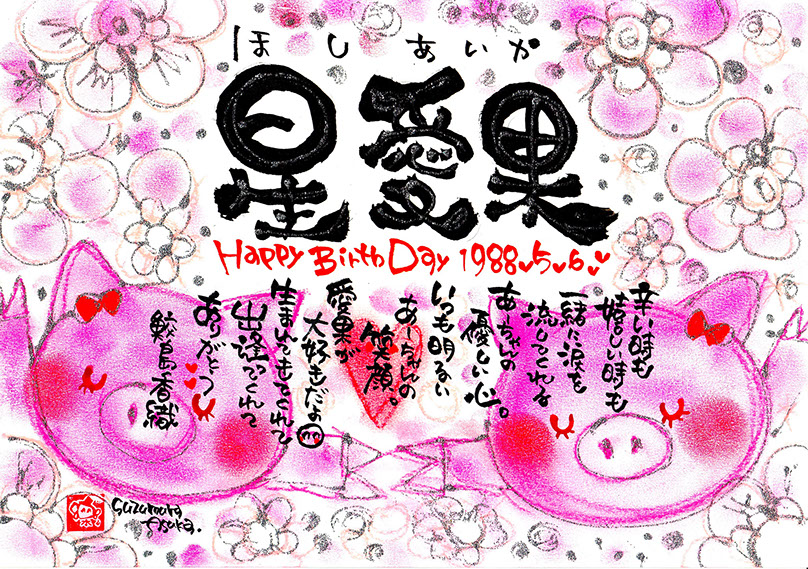 ほしあいか
星愛果
Happy BirthDay 1988.5.6
辛い時も
嬉しい時も
一緒に涙を
流してくれる
あーちゃんの
優しい心。
いつも明るい
あーちゃんの
笑顔。
愛果が
大好きだよ
生まれてきてくれて
出逢ってくれて
ありがとう
鮫島香織
Suzumura
Asuka.